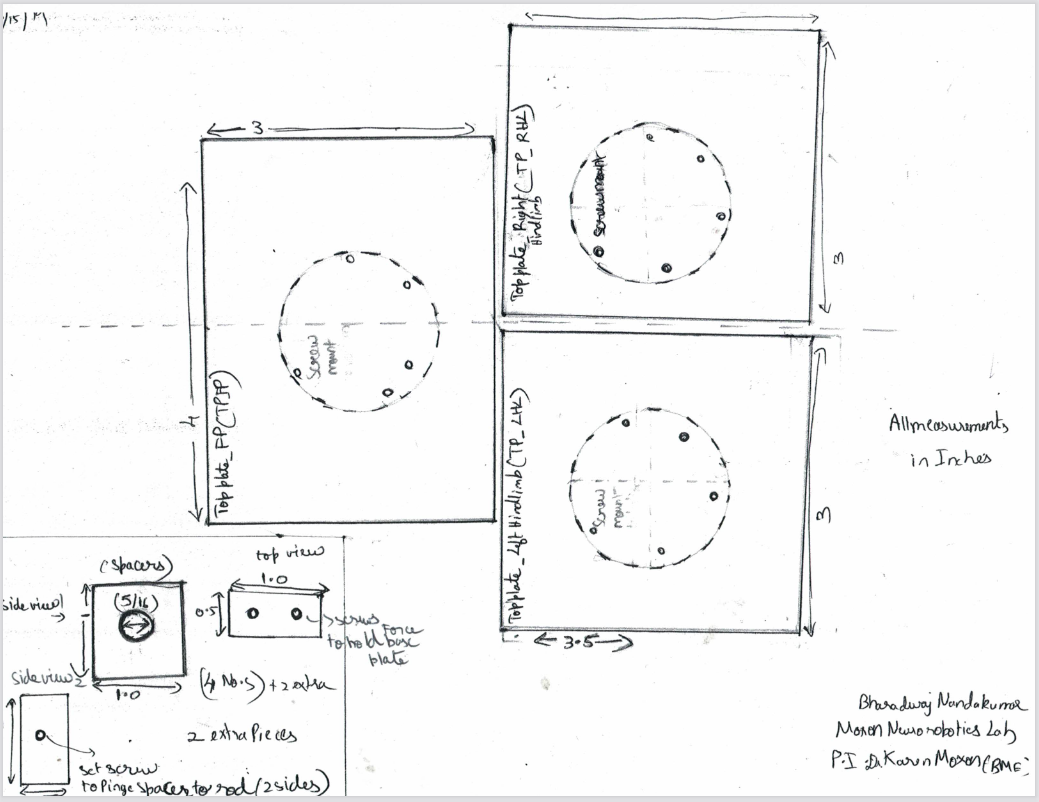 /15/M
3
4
Top plate_FP(TPFP)
Screw
mount
Top plate_Right(TP_RHL)
Hindlimb
Screwmount
3
Top plate_Left Hindlimb(TP_LHL)
Screw
mount
3
3.5
All measurements
in Inches
(Spacers)
side view1
(5/16)
1.0
top view
1.0
0.5
screws Force
to hold base
plate
(4 No.s) + 2 extra
2 extra Pieces
side view2
set screw
to Pinge spacers to rod (2 sides)
Bharadwaj Nandakumar
Moxon Neurorobotics Lab
P.I Dr Karen Moxon (BME)